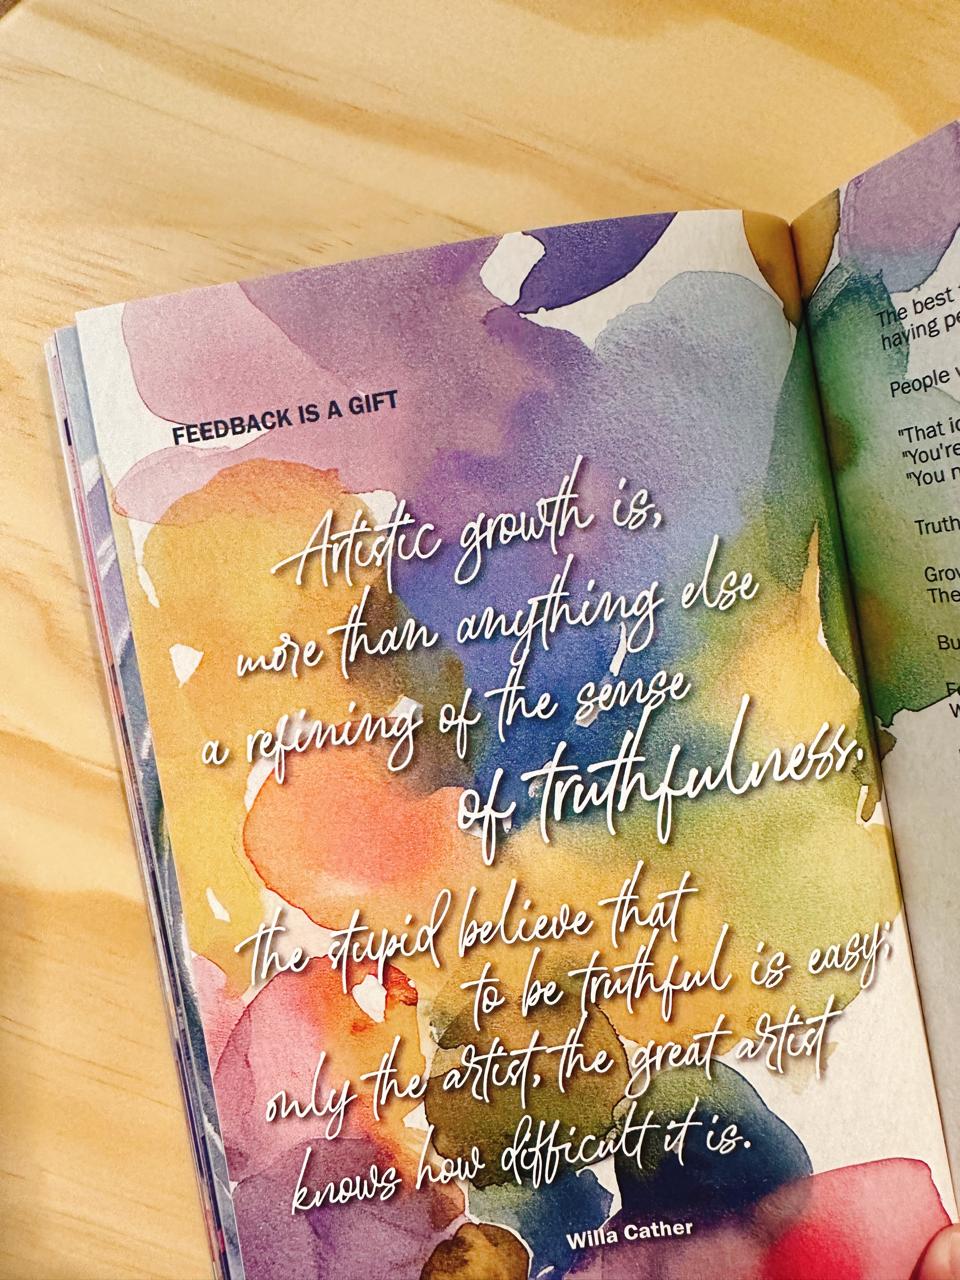 FEEDBACK IS A GIFT
Artistic growth is,
more than anything else
a refining of the sense
of truthfulness.
the stupid believe that
to be truthful is easy;
only the artist, the great artist
knows how difficult it is.
Willa Cather
The best
having
People
"That
"You're
"You
Truth
The